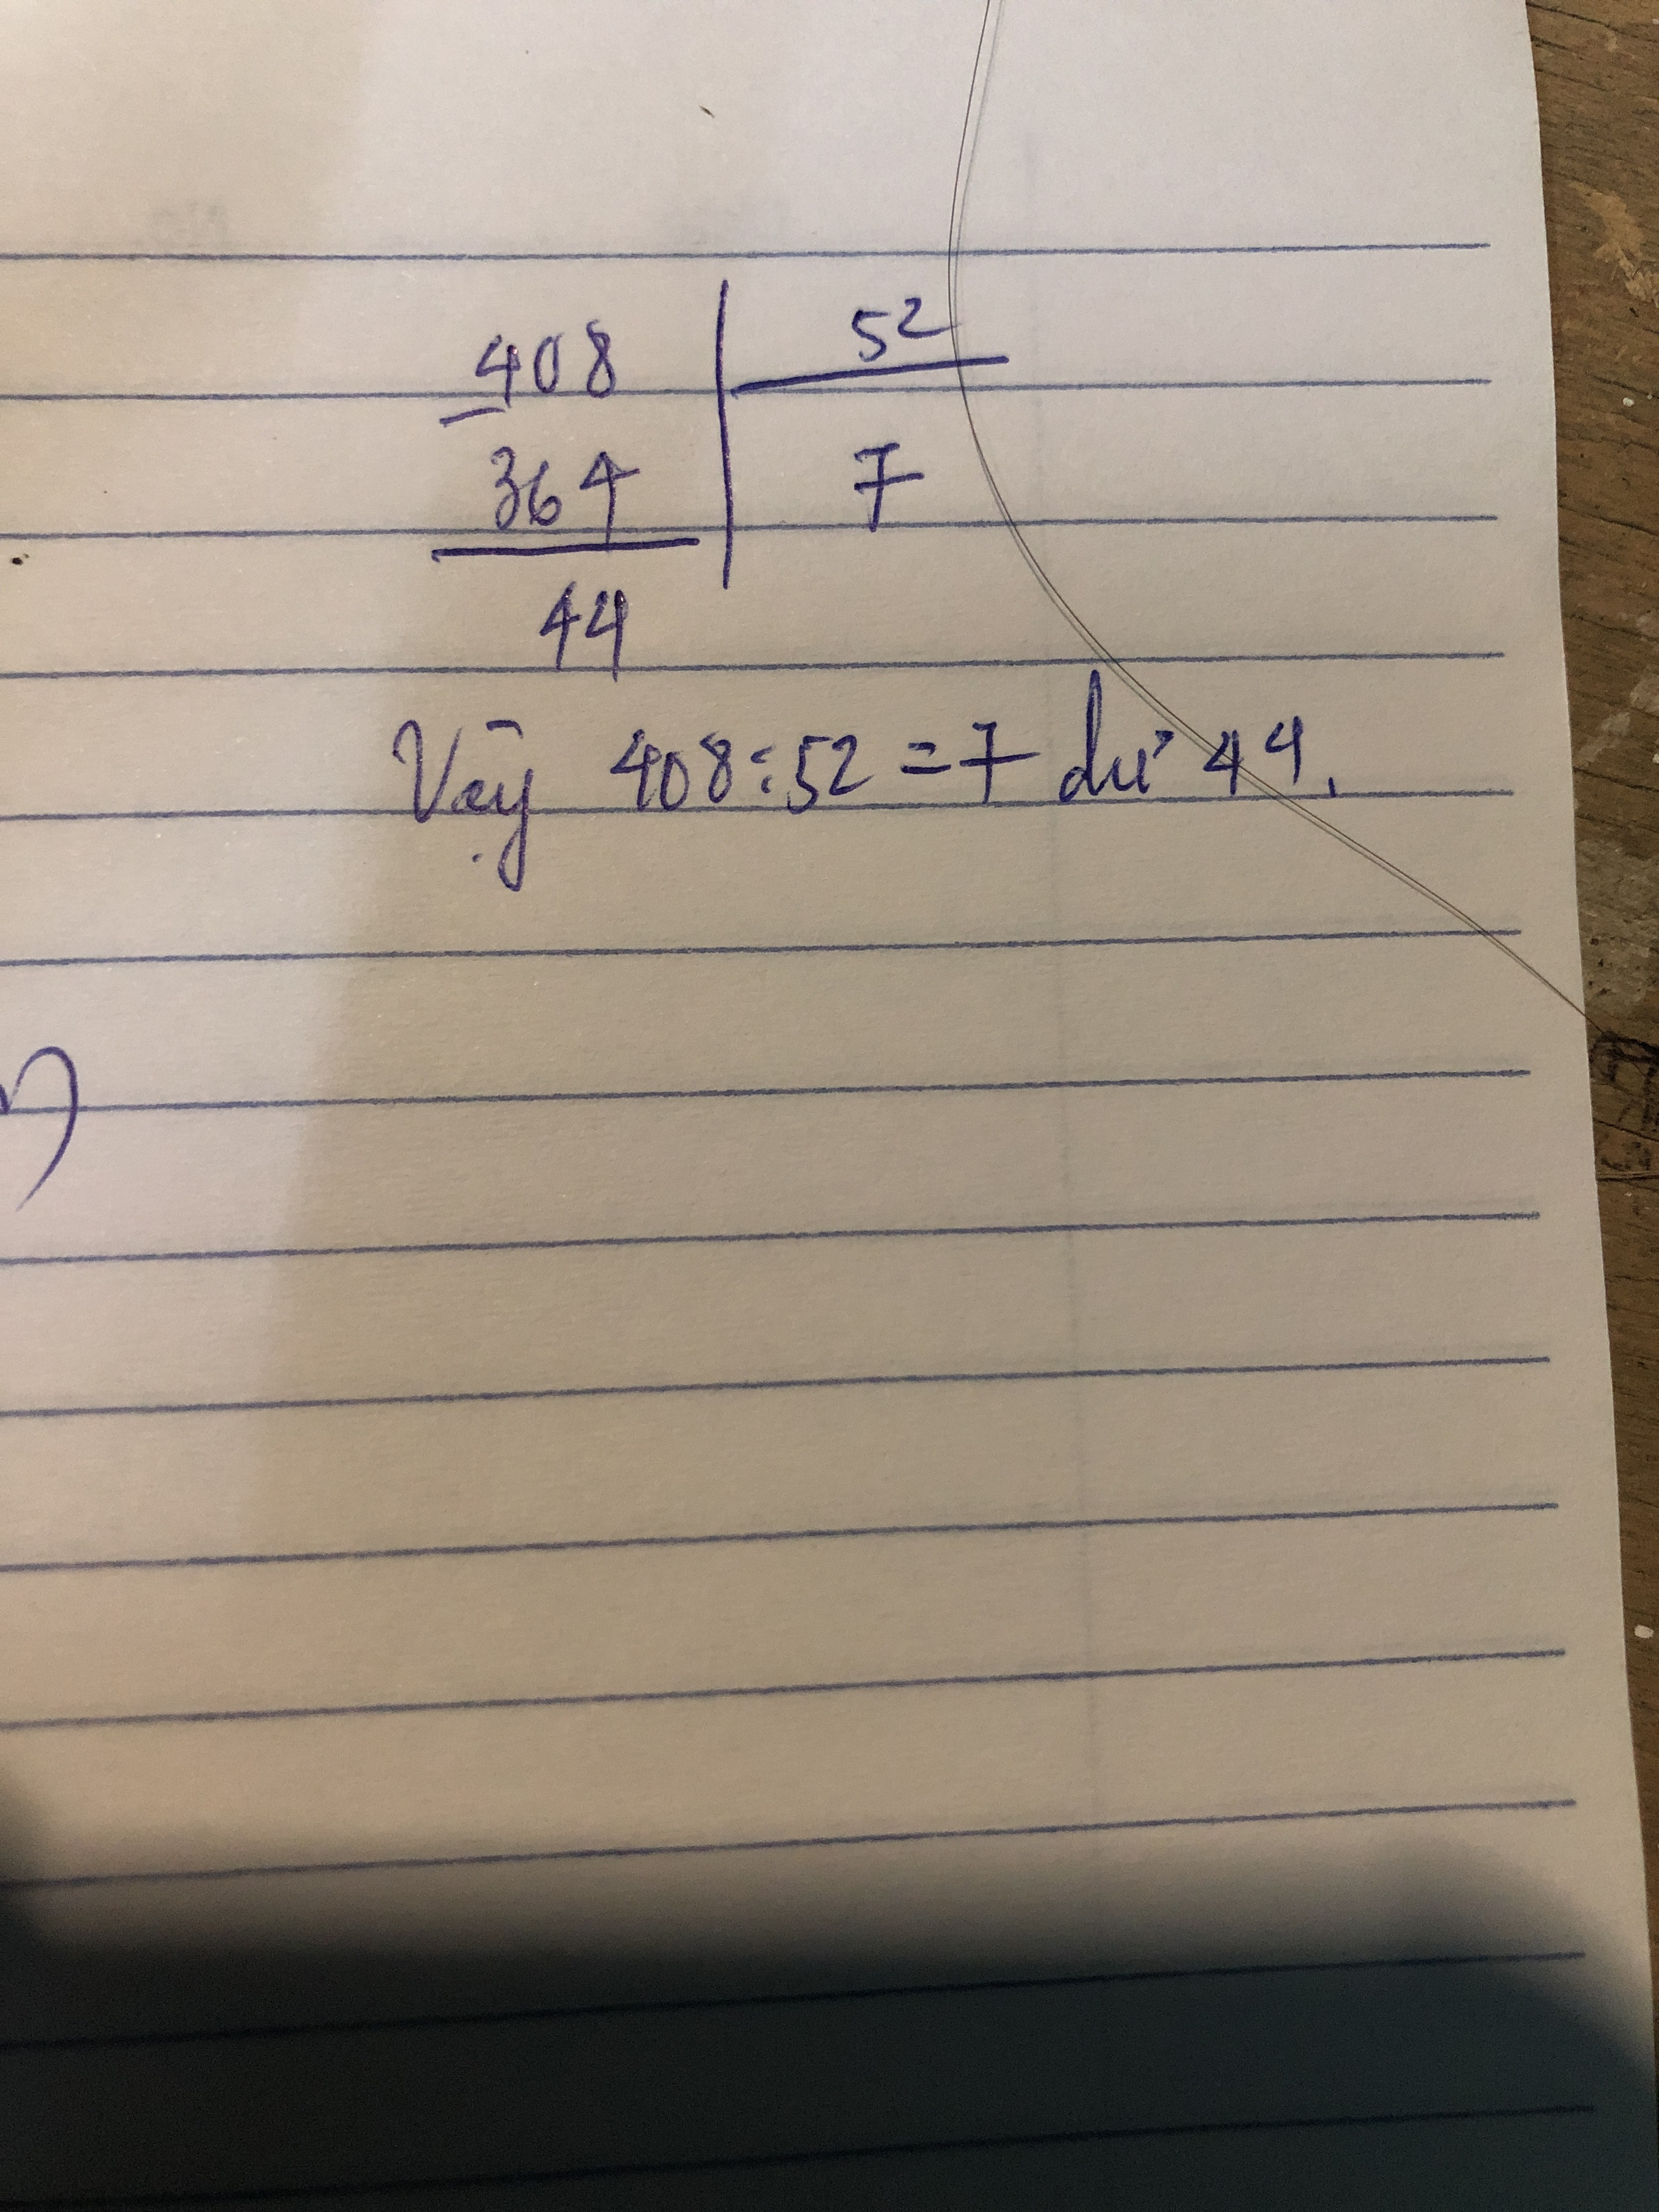 408 | 52
- 364 | 7
44
Vậy 408:52=7 dư 44.